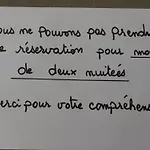 ous ne pouvons pas prendr
e réservation pour mo
de deux nuitées
erci pour votre compréhens